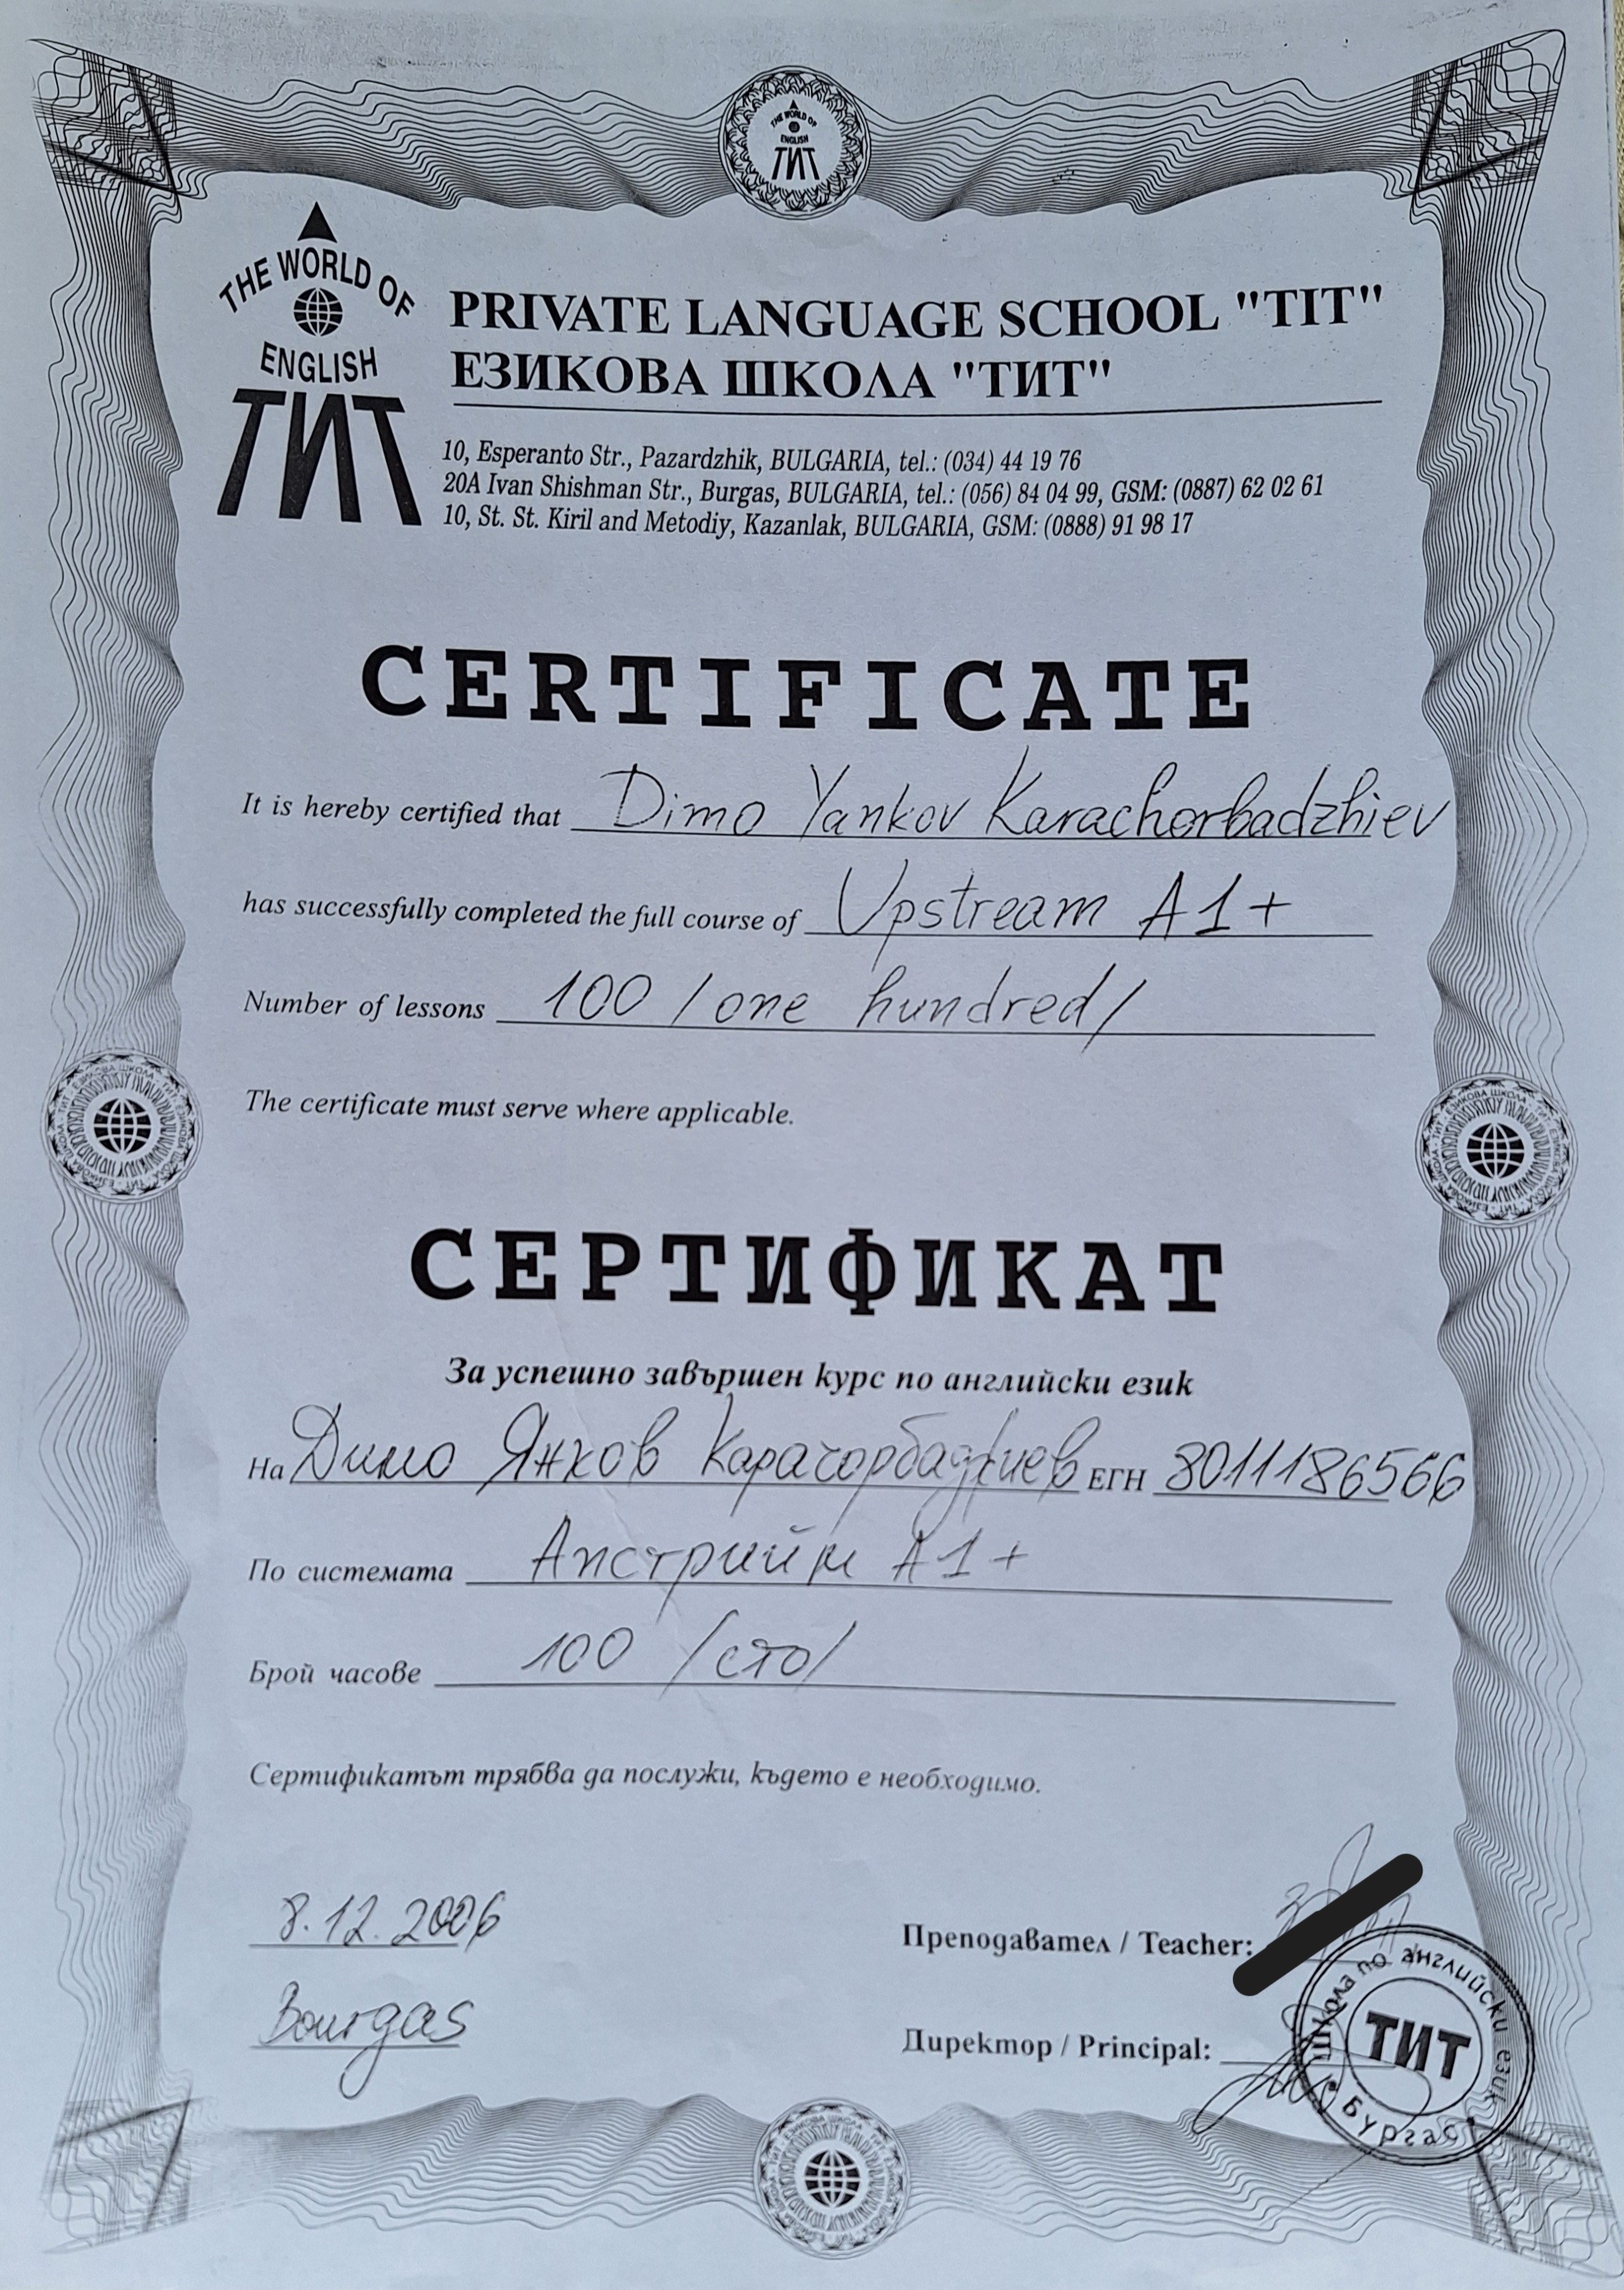 THE WORLD OF
ENGLISH
ТИТ
THE WORLD OF
ENGLISH
ТИТ
PRIVATE LANGUAGE SCHOOL "TIT"
ЕЗИКОВА ШКОЛА "ТИТ"
10, Esperanto Str., Pazardzhik, BULGARIA, tel.: (034) 44 19 76
20A Ivan Shishman Str., Burgas, BULGARIA, tel.: (056) 84 04 99, GSM: (0887) 62 02 61
10, St. St. Kiril and Metodiy, Kazanlak, BULGARIA, GSM: (0888) 91 98 17
CERTIFICATE
It is hereby certified that Dimo Yankov Karachorbadzhiev
has successfully completed the full course of Upstream A1+
Number of lessons 100 / one hundred/
The certificate must serve where applicable.
СЕРТИФИКАТ
За успешно завършен курс по английски език
На Димо Янков Карачорбаджиев ЕГН 8011186566
По системата Апстрийм А1+
Брой часове 100 /сто/
Сертификатът трябва да послужи, където е необходимо.
8.12.2006
Bourgas
Преподавател / Teacher:
Директор / Principal:
Школа по английски език
ТИТ
Бургас